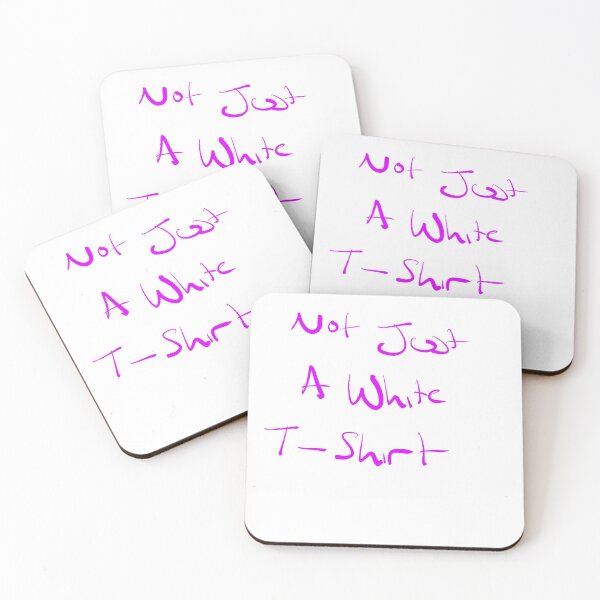 Not Just
A White
Not Just
A White
T-Shirt
Not Just
A White
T-Shirt
Not Just
A White
T-Shirt